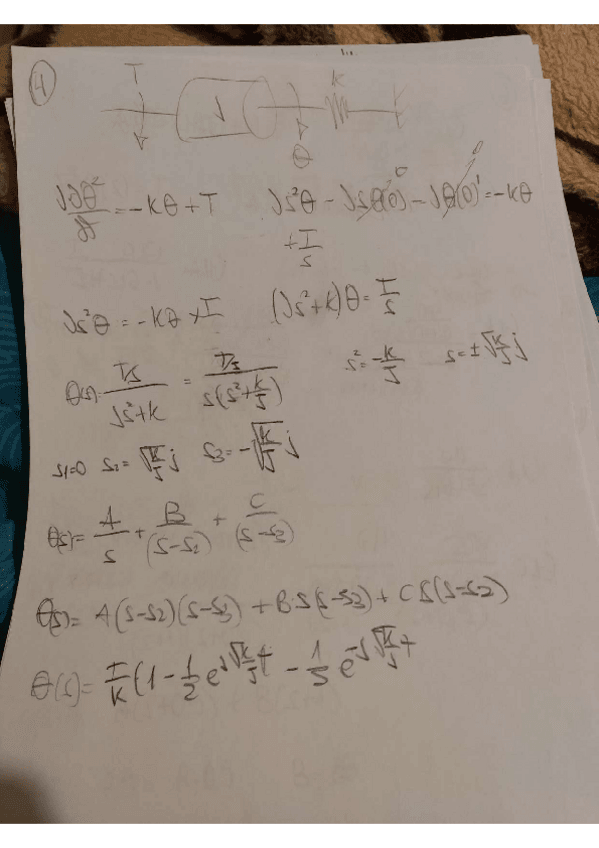 4
T J θ K
J∂θ²/∂t = -Kθ + T Js²θ - Jsθ(0) - Jθ(0)' = -Kθ
0 0
+ T/s
Js²θ = -Kθ + T (Js²+K)θ = T/s
θ(s) = T/s / Js²+K = T/J / s(s²+K/J) s² = -K/J s = ±√K/J j
s1=0 s2= √K/J j s3= -√K/J j
θ(s) = A/s + B/(s-s2) + C/(s-s3)
θ(s) = A(s-s2)(s-s3) + Bs(s-s3) + Cs(s-s2)
θ(s) = T/K (1 - 1/2 e^j√K/J t - 1/5 e^-j√K/J t